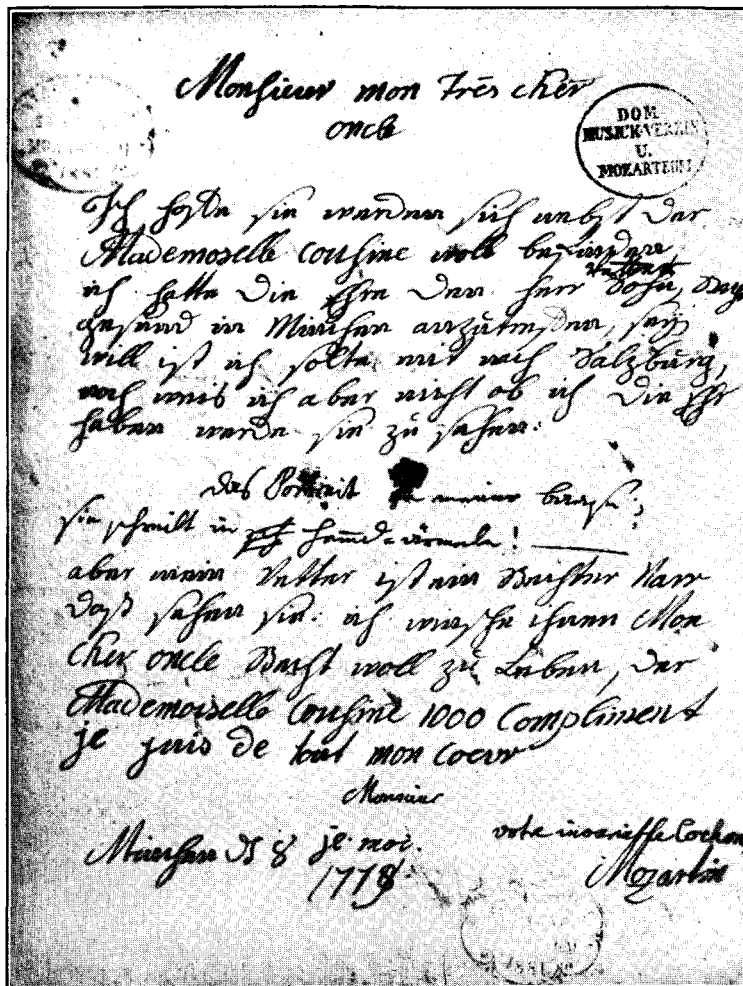 Monsieur mon très cher
oncle
DOM
MUSICK-VEREIN
U.
MOZARTEUM
Ich hoffe sie werden sich nebst der
Mademoselle Cousine woll befinden
ich hatte die Ehre den herr Sohn,
gesund in München anzutreffen, sein
will ist ich solte mit nach Salzburg,
noch weis ich aber nicht ob ich die Ehr
haben werde sie zu sehen:
das Portrait meiner baase;
sie schreibt in hemd-ärmeln!
aber mein Vetter ist ein Rechter Narr
daß sehen sie: ich winsche ihnen Mon
cher oncle Recht woll zu Leben, der
Mademoiselle Cousine 1000 Compliment
je suis de tout mon coeur
Monsieur
München 8
1779
Mozartin